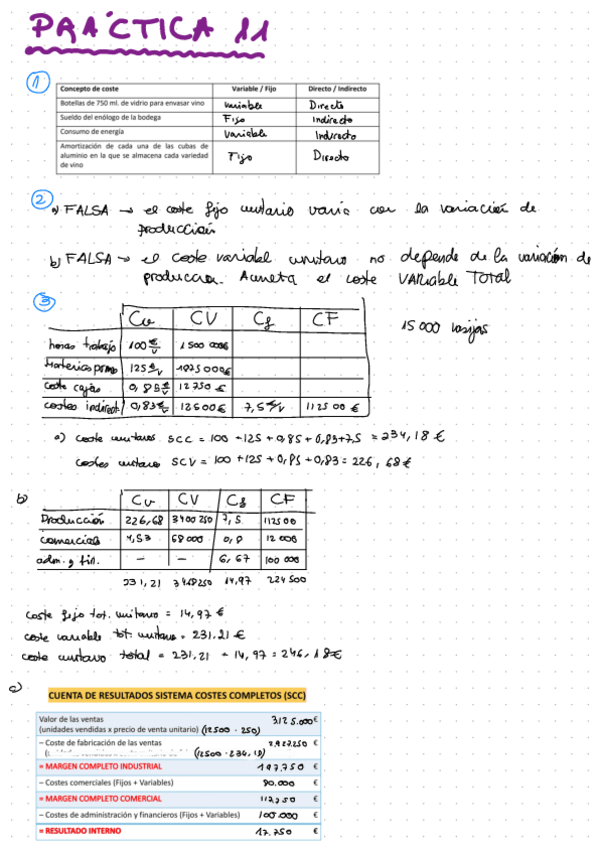 PRÁCTICA 11
1
Concepto de coste Variable / Fijo Directo / Indirecto
Botellas de 750 ml. de vidrio para envasar vino variable Directo
Sueldo del enólogo de la bodega Fijo indirecto
Consumo de energía variable Indirecto
Amortización de cada una de las cubas de
aluminio en la que se almacena cada variedad Fijo Directo
de vino
2
a) FALSA → el coste fijo unitario varía con la variación de
producción
b) FALSA → el coste variabel unitario no depende de la variación de
produccion. Aumeta el coste VARIABLE TOTAL
3
Cv CV Cf CF
15 000 vasijas
horas trabajo 100 €/v 1 500 000€
Materias primas 125 €/v 1875000€
coste cajas 0,85 €/v 12 750 €
costes indirect. 0,83 €/v 12500 € 7,5 €/v 112500 €
a) coste unitario SCC = 100 + 125 + 0,85 + 0,83 + 7,5 = 234,18 €
costes unitario SCV = 100 + 125 + 0,85 + 0,83 = 226,68 €
b)
Cv CV Cf CF
Producción 226,68 3400 250 7,5 112500
comercial 4,53 68 000 0,8 12 000
adm. y fin. – – 6,67 100 000
231,21 3468250 14,97 224 500
coste fijo tot. unitario = 14,97 €
coste variable tot. unitario = 231.21 €
coste unitario total = 231,21 + 14,97 = 246,18 €
c)
CUENTA DE RESULTADOS SISTEMA COSTES COMPLETOS (SCC)
Valor de las ventas 3125.000 €
(unidades vendidas x precio de venta unitario) (12500 · 250)
– Coste de fabricación de las ventas 2.927.250 €
(12500 · 234,18)
= MARGEN COMPLETO INDUSTRIAL 197,750 €
– Costes comerciales (Fijos + Variables) 80.000 €
= MARGEN COMPLETO COMERCIAL 117,750 €
– Costes de administración y financieros (Fijos + Variables) 100.000 €
= RESULTADO INTERNO 17.750 €